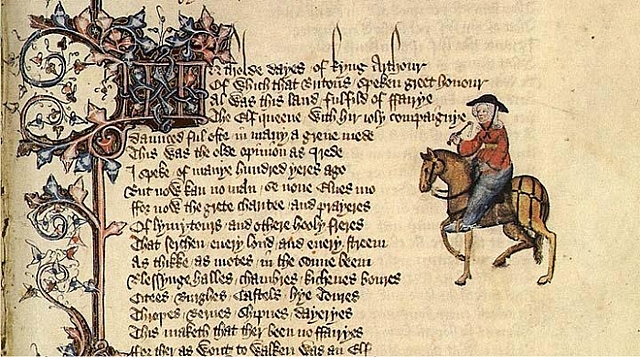 IN Tholde dayes of kyng Arthour
Of which that Britons speken greet honour
Al was this land fulfild of ffairye
The Elf queene with hir ioly compaignye
Daunced ful ofte in many a grene mede
This was the olde opinion as I rede
I speke of manye hundred yeres ago
But now kan no man se none Elues mo
ffor now the grete charitee and prayeres
Of lymytours and othere hooly freres
That serchen euery lond and euery streem
As thikke as motes in the sonne beem
Blessynge halles chambres kichenes boures
Citees Burghes Castels hye Toures
Thropes Bernes Shipnes dayeryes
This maketh that ther been no ffairyes
ffor ther as wont to walken was an Elf